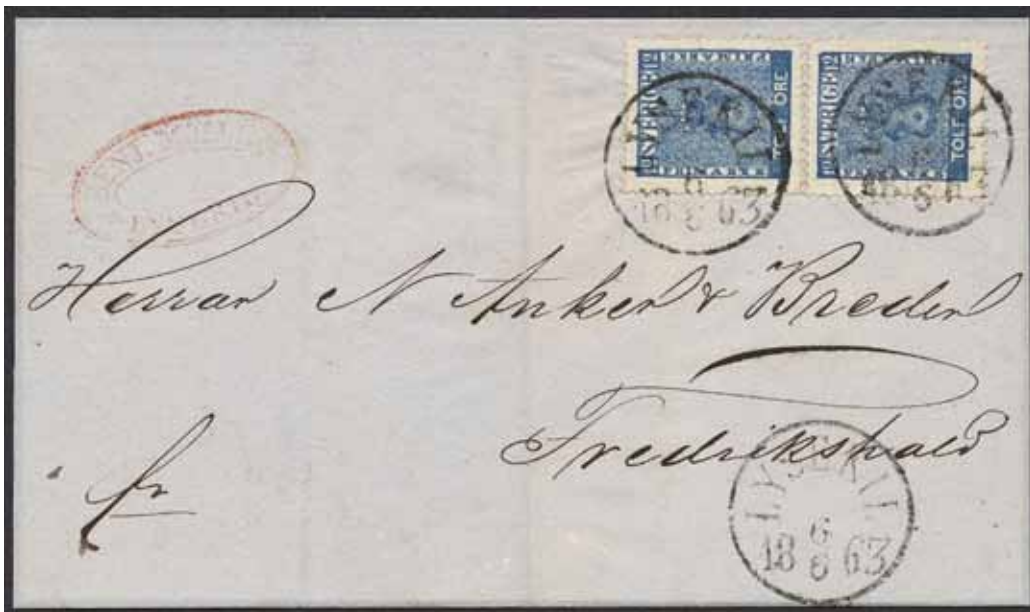 12 SVERIGE 12
FRIMÄRKE
TOLF ÖRE
12 SVERIGE 12
FRIMÄRKE
TOLF ÖRE
LYSEKIL
6
18 63
6
LYSEKIL
18 63
6
Herrar N Anker & Breder
Fredrikshald
fr
LYSEKIL
6
18 63
6